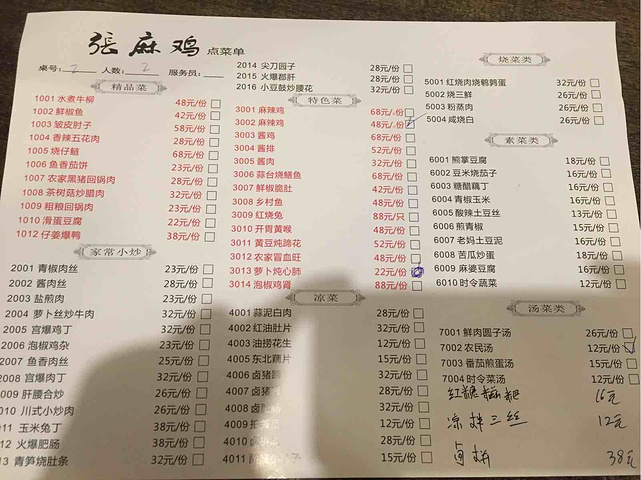 张麻鸡 点菜单
桌号: 2 人数: 2 服务员:
精品菜
1001 水煮牛柳 48元/份
1002 鲜椒鱼 42元/份
1003 皱皮肘子 58元/份
1004 香辣五花肉 28元/份
1005 烧仔鳝 68元/份
1006 鱼香茄饼 23元/份
1007 农家黑猪回锅肉 28元/份
1008 茶树菇炒腊肉 32元/份
1009 粗粮回锅肉 23元/份
1010 滑蛋豆腐 22元/份
1012 仔姜爆鸭 38元/份
家常小炒
2001 青椒肉丝 23元/份
2002 酱肉丝 28元/份
2003 盐煎肉 23元/份
2004 萝卜丝炒牛肉 32元/份
2005 宫爆鸡丁 32元/份
2006 泡椒鸡杂 23元/份
2007 鱼香肉丝 25元/份
2008 宫爆肉丁 32元/份
009 肝腰合炒 26元/份
010 川式小炒肉 26元/份
011 玉米兔丁 38元/份
12 火爆肥肠 38元/份
13 青笋烧肚条 32元/份
2014 尖刀园子 28元/份
2015 火爆郡肝 28元/份
2016 小豆鼓炒腰花 32元/份
特色菜
3001 麻辣鸡 68元/份
3002 麻辣鸡 48元/份
3003 酱鸡 68元/份
3004 酱排 52元/份
3005 酱肉 32元/份
3006 蒜台烧鳝鱼 68元/份
3007 鲜椒脆肚 42元/份
3008 乡村鱼 48元/份
3009 红烧兔 88元/只
3010 开胃黄喉 48元/份
3011 黄豆炖蹄花 52元/份
3012 农家冒血旺 48元/份
3013 萝卜炖心肺 22元/份
3014 泡椒鸡肾 88元/份
凉菜
4001 蒜泥白肉 28元/份
4002 红油肚片 32元/份
4003 油捞花生 12元/份
4005 东北藕片 15元/份
4006 卤猪 32元/份
4007 卤猪 28元/份
4008 卤 32元/份
4009 12元/份
4010 28元/份
4011 15元/份
烧菜类
5001 红烧肉烧鹌鹑蛋 32元/份
5002 烧三鲜 26元/份
5003 粉蒸肉 26元/份
5004 咸烧白 26元/份
素菜类
6001 熊掌豆腐 18元/份
6002 豆米烧茄子 16元/份
6003 糖醋藕丁 16元/份
6004 青椒玉米 16元/份
6005 酸辣土豆丝 13元/份
6006 煎青椒 15元/份
6007 老妈土豆泥 16元/份
6008 苦瓜炒蛋 18元/份
6009 麻婆豆腐 16元/份
6010 时令蔬菜 12元/份
汤菜类
7001 鲜肉圆子汤 26元/份
7002 农民汤 12元/份
7003 番茄煎蛋汤 15元/份
7004 时令菜汤 12元/份
红糖糍粑 16元
凉拌三丝 12元
卤拼 38元